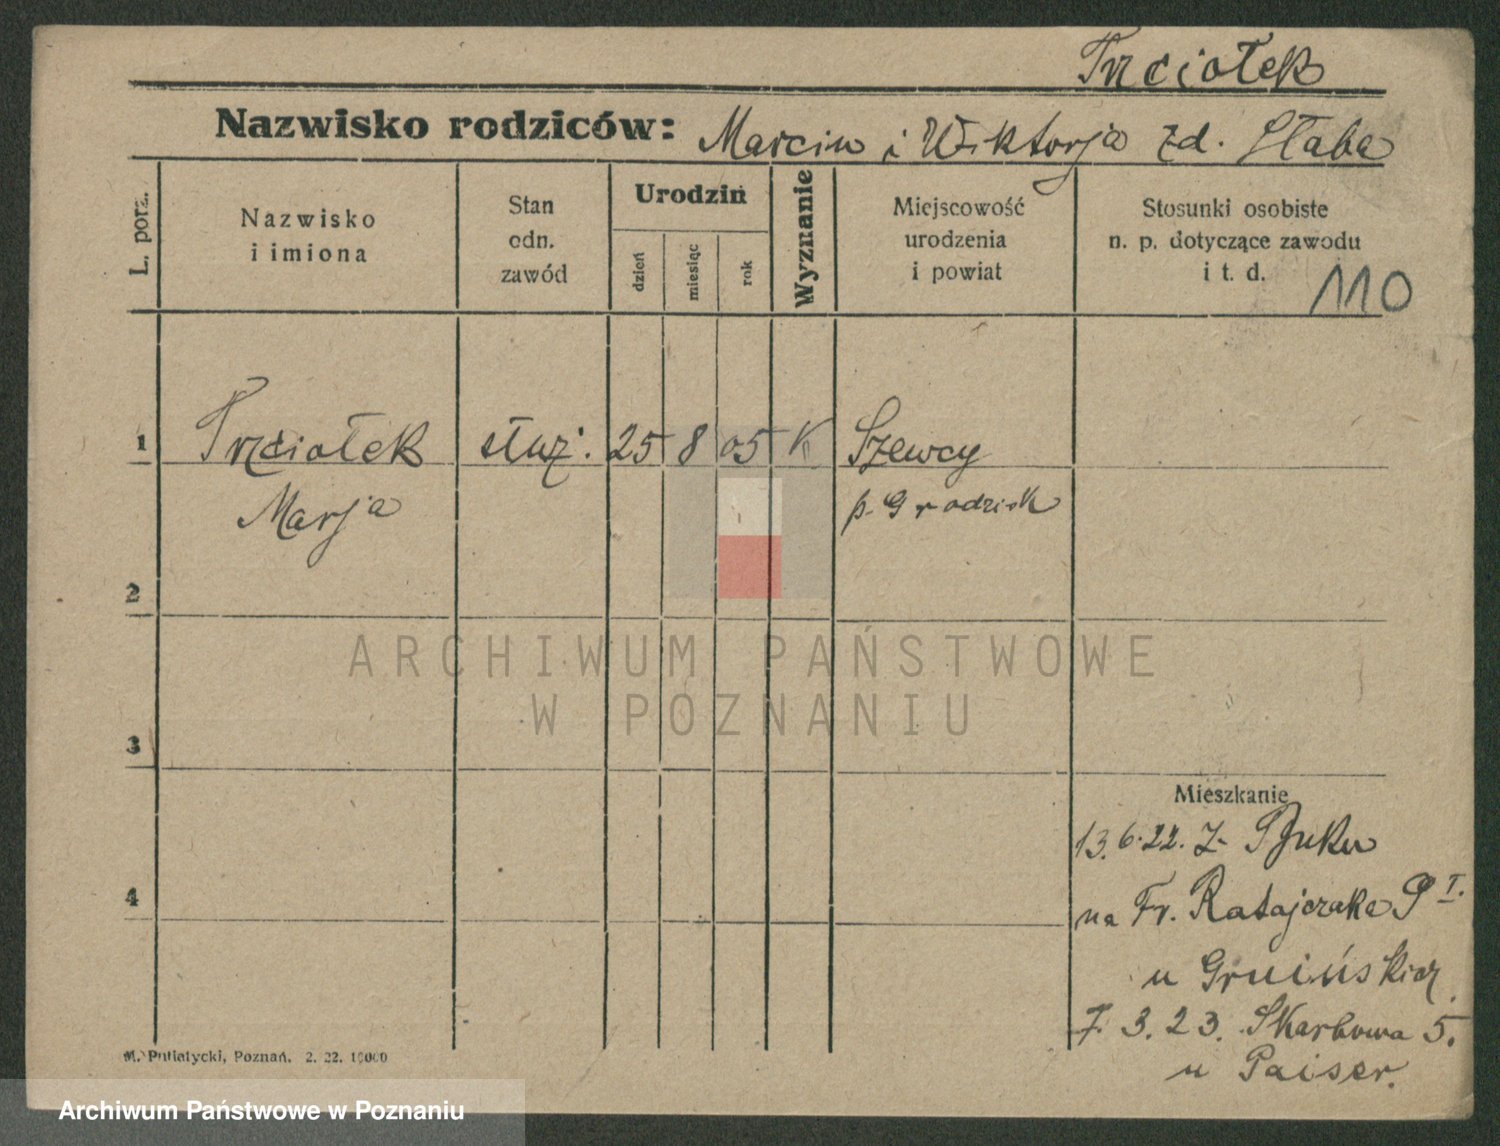 Trzciołek
Nazwisko rodziców: Marcin i Wiktorja zd. Słaba
L. porz.
Nazwisko
i imiona
Stan
odn.
zawód
Urodzin
dzień
miesiąc
rok
Wyznanie
Miejscowość
urodzenia
i powiat
Stosunki osobiste
n. p. dotyczące zawodu
i t. d.
110
1 Trzciołek służ. 25 8 05 K Szewcy
Marja p. Grodzisk
2
ARCHIWUM PAŃSTWOWE
W POZNANIU
3
Mieszkanie
13.6.22. z Buku
4
na Fr. Ratajczaka I.
u
7.3.23. Skarbowa 5.
u Paiser.
M. Putiatycki, Poznań. 2. 22. 10000
Archiwum Państwowe w Poznaniu